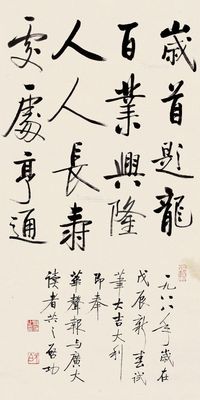 歲首題龍
百業興隆
人人長壽
處處亨通
一九八八年歲在
戊辰新春試
筆大吉大利
即奉
華聲報與廣大
讀者共之 启功